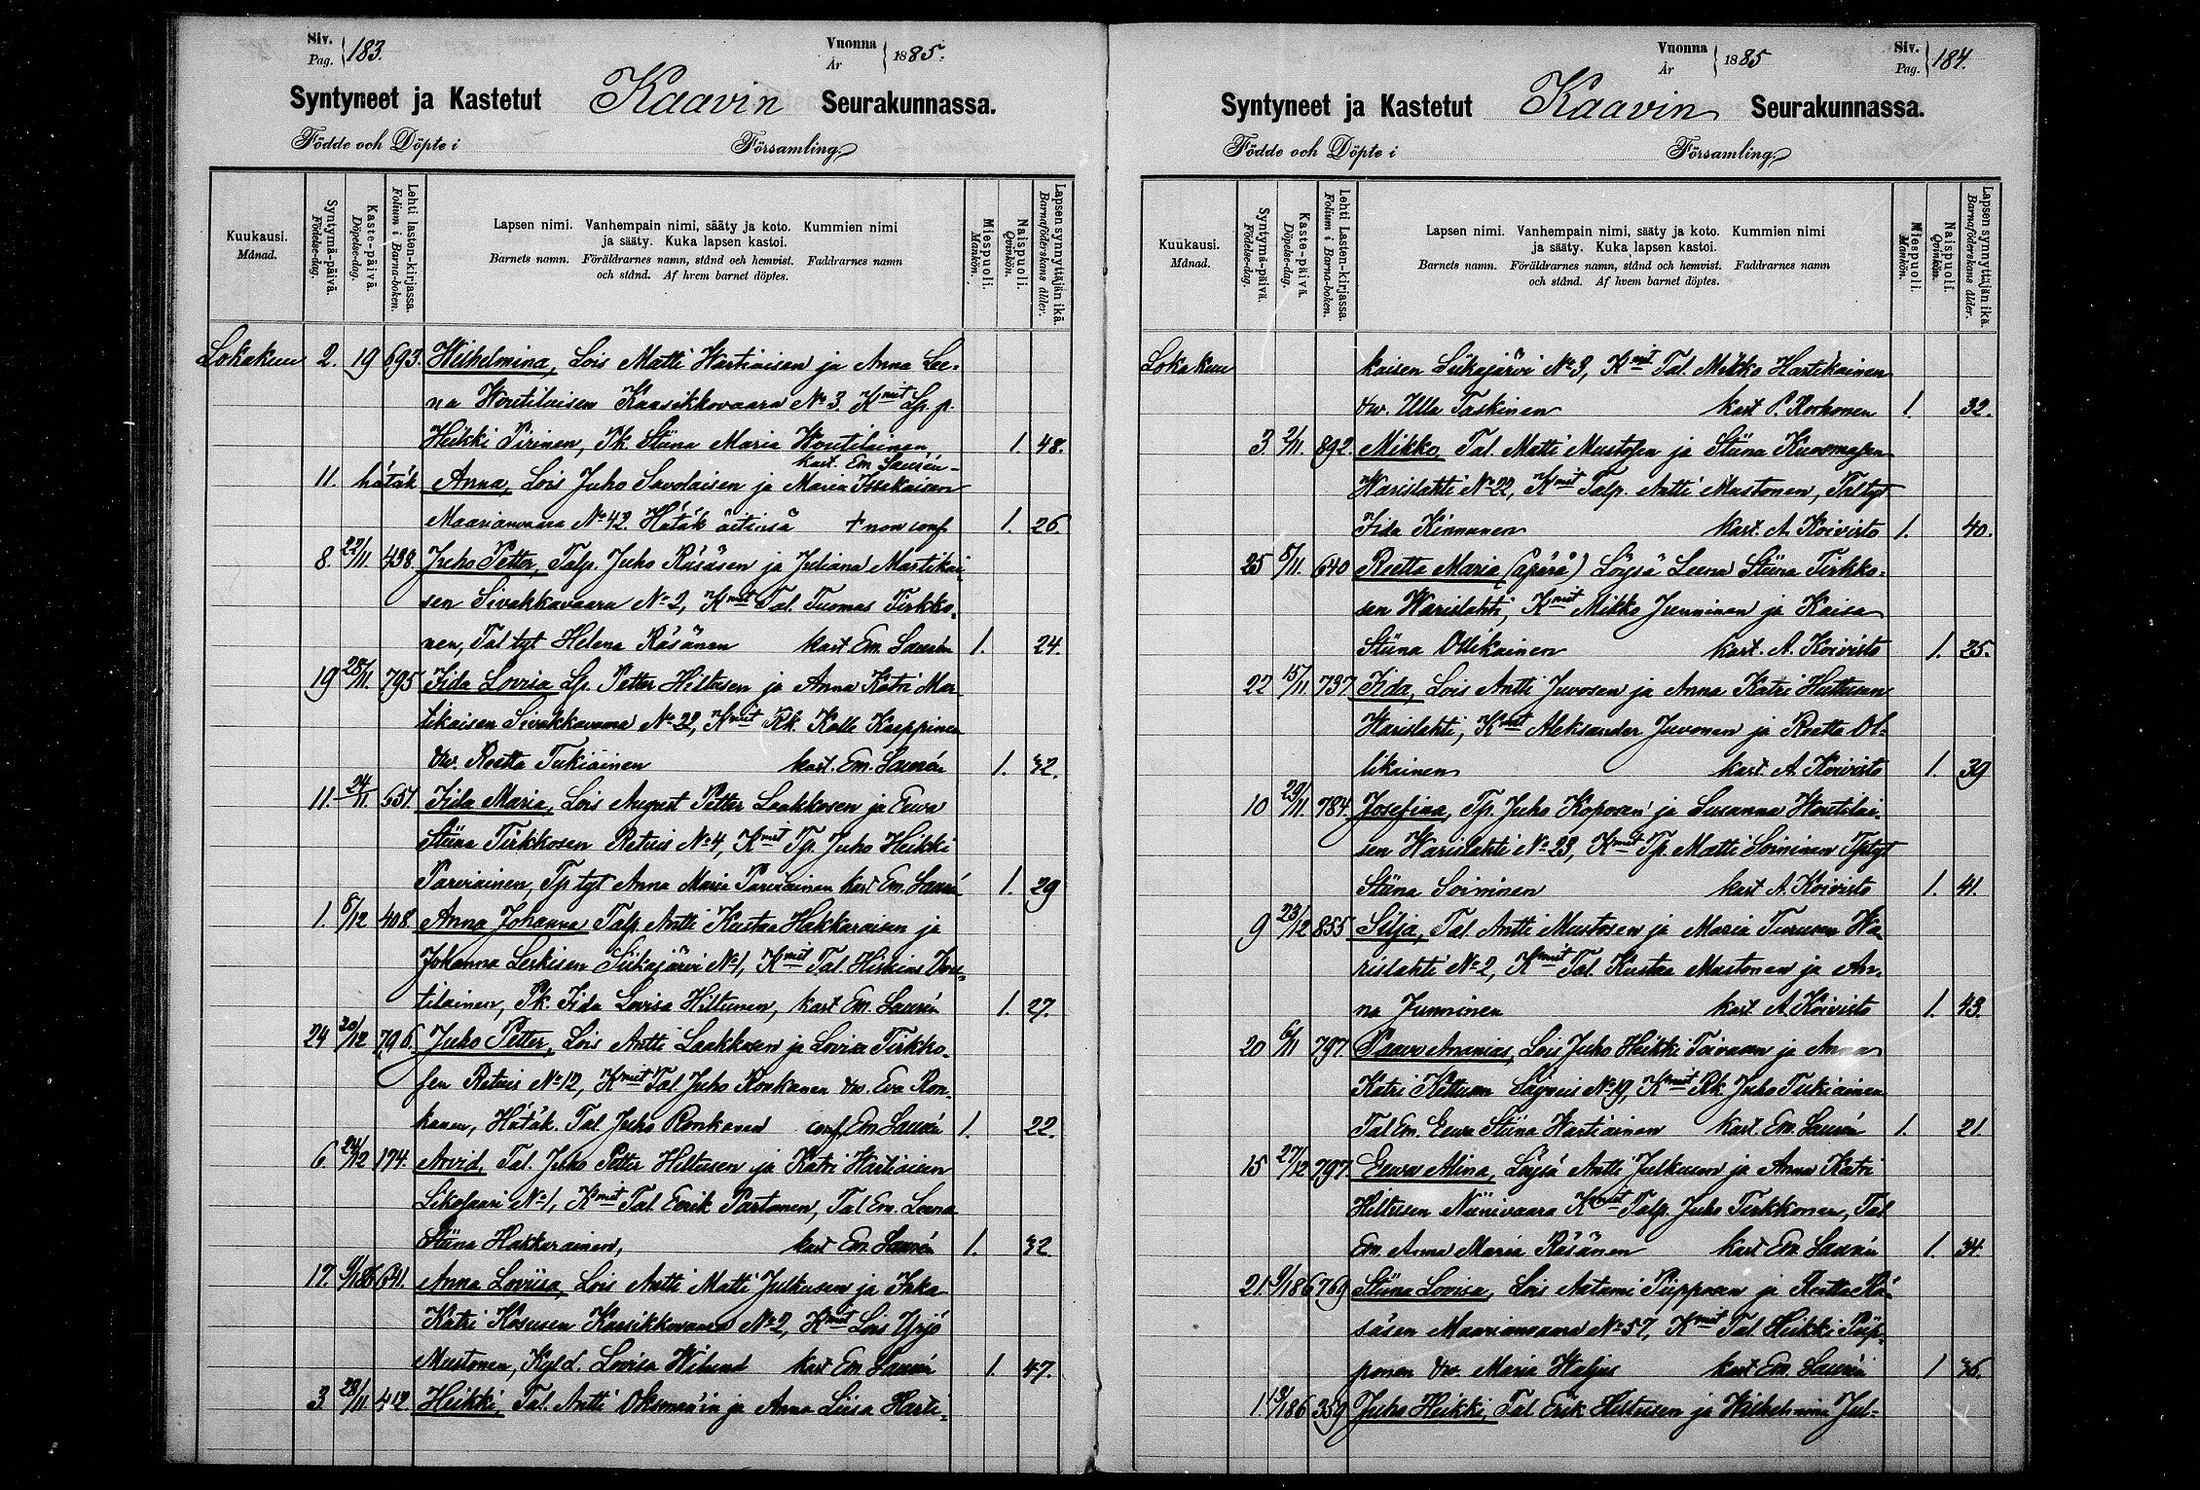 Siv. Pag. 183. Vuonna År 1885.
Syntyneet ja Kastetut Kaavin Seurakunnassa.
Födde och Döpte i Församling
Kuukausi. Månad.
Syntymä-päivä. Födelse-dag.
Kaste-päivä. Döpelse-dag.
Lehti lasten-kirjassa. Folium i Barna-boken.
Lapsen nimi. Vanhempain nimi, sääty ja koto. Kummien nimi
ja sääty. Kuka lapsen kastoi.
Barnets namn. Föräldrarnes namn, stånd och hemvist. Faddrarnes namn
och stånd. Af hvem barnet döptes.
Miespuoli. Mankön.
Naispuoli. Qvinkön.
Lapsen synnyttäjän ikä. Barnaföderskans ålder.
Lokakuu 2. 19 693. Wilhelmina, Lois Matti Wartiaisen ja Anna Lee-
na Woutilaisen Kaasikkovaara No 3. Kmit Lp. p.
Heikki Pirinen, Pk. Stiina Maria Woutilainen, 1. 48.
kast. Em. Saurén
11. hätäk Anna, Lois Juho Savolaisen ja Maria Issekaisen
Maarianvaara No 42. Hätäk äitinsä + non conf 1. 26.
8. 22/11. 438. Juho Petter, Talp. Juho Räsäsen ja Juliana Martikai-
sen Sivakkavaara No 2, Kmit Tal. Tuomas Tirkko-
nen, Tal tyt Helena Räsänen kast Em. Saurén 1. 24.
19 28/11. 795 Iida Lovisa Lp. Petter Hiltusen ja Anna Katri Mar
tikaisen Sivakkavaara No 22, Kmit Rk. Kalle Karppinen
vw. Reetta Tukiainen kast. Em. Saurén 1. 32.
11. 24/11. 657. Iida Maria, Lois August Petter Laakkosen ja Eewa
Stiina Tirkkosen Retuis No 4, Kmit Tp. Juho Heikki
Parviainen, Tp tyt Anna Maria Parviainen kast Em. Saurén 1. 29
1. 8/12 408. Anna Johanna Talp. Antti Kustaa Hakkaraisen ja
Johanna Leskisen Siikajärvi No 1, Kmit Tal. Hiskias Wou-
tilainen, Pk. Iida Lovisa Hiltunen, kast Em. Saurén 1. 27.
24 20/12 796. Juho Petter, Lois Antti Laakkosen ja Lovisa Tirkko-
sen Retuis No 12, Kmit Tal. Juho Ronkanen vw. Eva Ron-
kanen, Hätäk. Tal Juho Ronkanen conf Em. Saurén 1. 22.
6. 24/12 174. Arvid, Tal. Juho Petter Hiltusen ja Katri Wartiaisen
No 1, Kmit Tal Eerik Partanen, Tal Em. Leena
Stiina Hakkarainen, kast Em. Saurén 1. 32.
17. 641. Anna Loviisa, Lois Antti Matti Julkusen ja Inka
Katri Kosusen Kaasikkovaara No 2, Kmit Lois Yrjö
Mustonen, Kyl d. Lovisa Wilund kast Em. Saurén 1. 47.
3 28/11. 412. Heikki, Tal. Antti Oksman'in ja Anna Liisa Harti-
Vuonna År 1885 Siv. Pag. 184.
Syntyneet ja Kastetut Kaavin Seurakunnassa.
Födde och Döpte i Församling
Kuukausi. Månad.
Syntymä-päivä. Födelse-dag.
Kaste-päivä. Döpelse-dag.
Lehti Lasten-kirjassa. Folium i Barna-boken.
Lapsen nimi. Vanhempain nimi, sääty ja koto. Kummien nimi
ja sääty. Kuka lapsen kastoi.
Barnets namn. Föräldrarnes namn, stånd och hemvist. Faddrarnes namn
och stånd. Af hvem barnet döptes.
Miespuoli. Mankön.
Naispuoli. Qvinkön.
Lapsen synnyttäjän ikä. Barnaföderskans ålder.
Lokakuu kaisen Siikajärvi No 3, Kmit Tal. Mikko Hartikainen
vw. Ulla Taskinen kast P. Korhonen 1. 32.
3 2/11. 892. Mikko, Tal. Matti Mustosen ja Stiina Kuosmasen
Warislahti No 22, Kmit Talp. Antti Mustonen, Tal tyt
Iida Kinnunen kast. A. Koivisto 1. 40.
25 8/11. 640 Reetta Maria (äpärä) Löysä Leena Stiina Tirkko-
sen Warislahti, Kmit Mikko Junninen ja Kaisa
Stiina Ollikainen kast. A. Koivisto 1. 25.
22 15/11 737. Iida, Lois Antti Juvosen ja Anna Katri Huttusen
Warislahti, Kmit Aleksander Juvonen ja Reetta Ol-
likainen kast. A. Koivisto 1. 39
10 29/11. 784. Josefina, Tp. Juho Koposen ja Susanna Woutilai-
sen Warislahti No 23, Kmit Tp. Matti Soininen Tp tyt
Stiina Soininen kast A. Koivisto 1. 41.
9 23/12 855 Silja, Tal. Antti Mustosen ja Maria Turusen Wa-
rislahti No 2, Kmit Tal. Kustaa Mustonen ja An-
na Junninen kast. A. Koivisto 1. 43.
20 6/11 797. Paavo Ananias, Lois Juho Heikki Toivasen ja Anna
Katri Kettusen No 19, Kmit Rk. Juho Tukiainen
Tal Em. Eewa Stiina Wartiainen kast. Em. Saurén 1. 21.
15 27/12 797. Eewa Alina, Löysä Antti Julkusen ja Anna Katri
Hiltusen Niinivaara Kmit Talp. Juho Tirkkonen, Tal
Em. Anna Maria Räsänen kast Em. Saurén 1. 34.
21. 6/186 769 Stiina Lovisa, Lois Aatami Piipposen ja Reetta Rä-
säsen Maarianvaara No 57, Kmit Tal Heikki Piip-
ponen vw. Maria Waljus kast Em. Saurén 1
1. 13/186 359 Juho Heikki, Tal Erik Hiltusen ja Wilhelmina Jul-